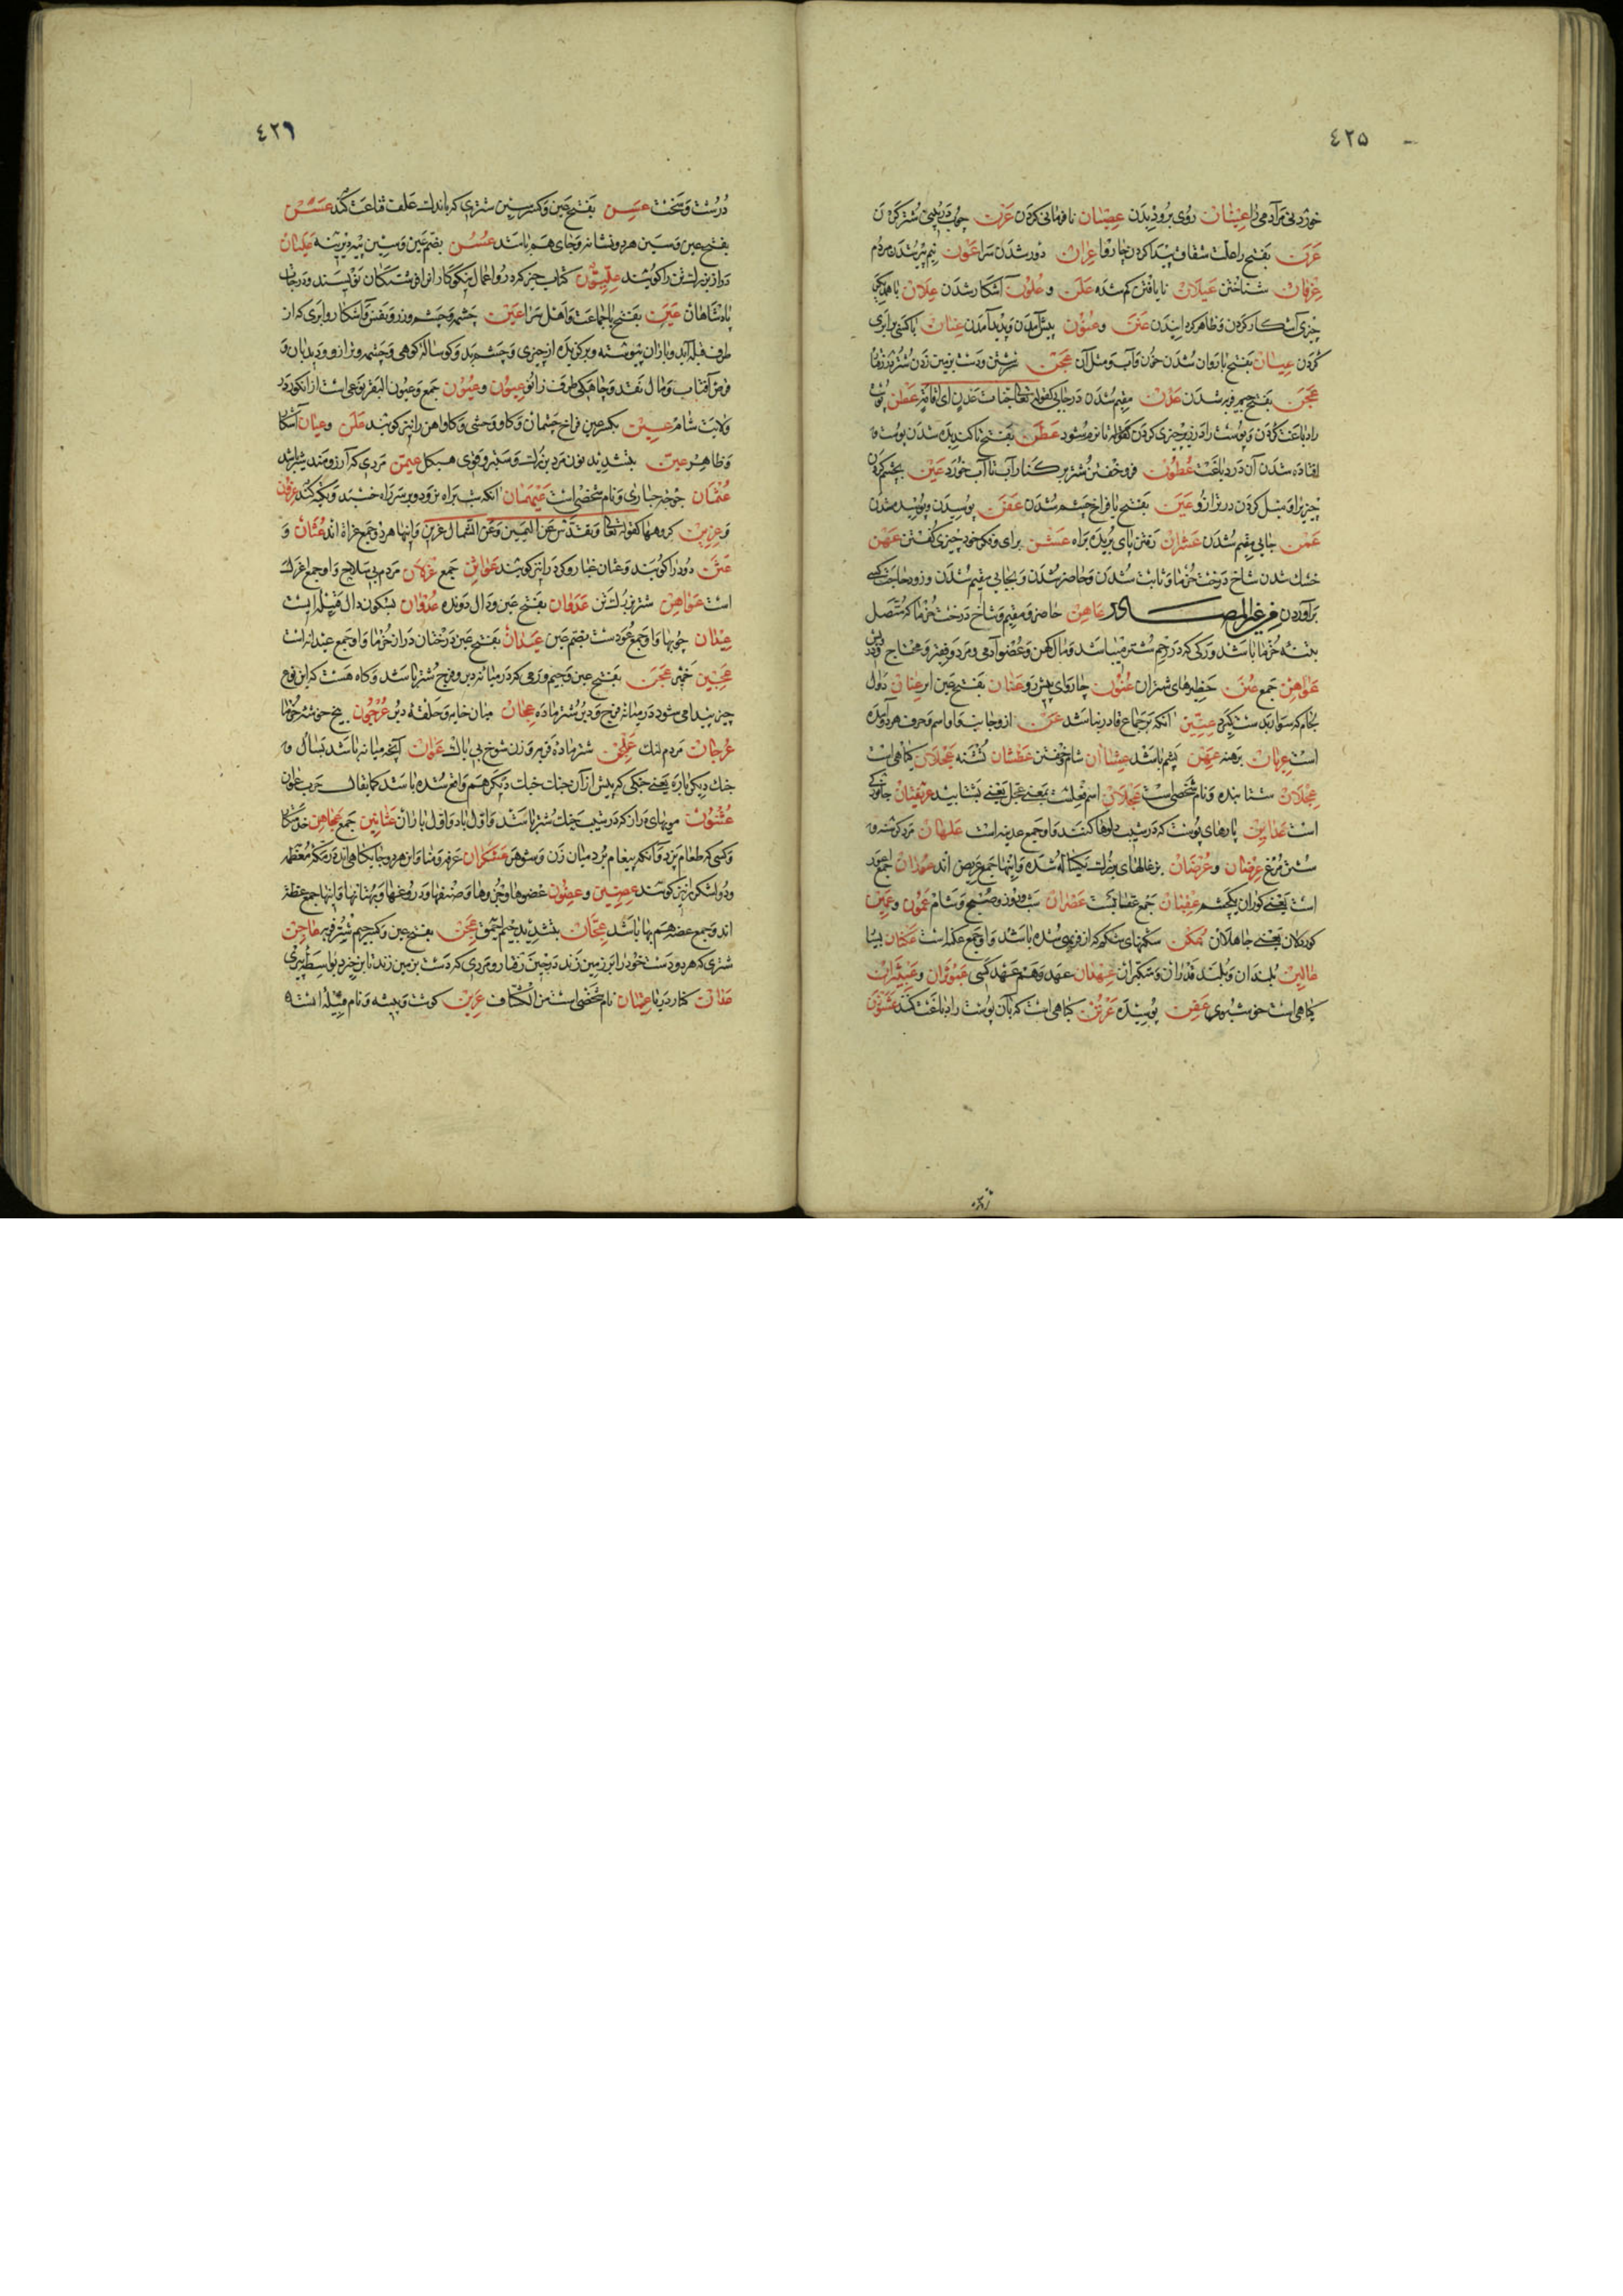 ٤٢٥
خوردنی مر آدمی را عیشان روی بروی دیدن عصیان نافرمانی کردن عرن چوب در بینی شتر کردن
عرن بفتح را علت شقاق پیدا کردن چاروا عران دور شدن سرا عون نیم پیر شدن مردم
عرفان شناختن عیلان نایافتن کم شده علن و علون آشکار شدن علان با هم
چیزی آشکار کردن و ظاهر گردانیدن عنن و عنون پیش آمدن و پدید آمدن عنان با کسی برابری
کردن عینان بفتح یا روان شدن خون و آب و مثل آن عجن سرشتن و دست بر زمین زدن شتر در رفتار
عجن بفتح جیم فربه شدن عدن مقیم شدن در جایی کقوله تعالی جنات عدن ای اقامة عطن پوست
را دباغت کردن و پوست را در زیر چیزی کردن تا نرم شود عطن بفتح طا کندیده شدن پوست و
افتاده شدن آن در دباغت عطون فرو خفتن شتر بر کنار آب تا آب خورد عین بچشم کردن
چیزی را و میل کردن در ترازو عین بفتح یا فراخ چشم شدن عفن پوسیدن و پوسیده شدن
عمن جایی مقیم شدن عشران رفتن پای بریده براه عشن برای و بکوی خود چیزی گفتن عهن
خشک شدن شاخ درخت خرما و ثابت شدن و حاضر شدن و بجایی مقیم شدن و زود حاجت کسی
برآوردن فی غیر المصادر عاهن حاضر و مقیم و شاخ درخت خرما که متصل
بتنه خرما باشد و رگی که در رحم شتر میباشد و مال کهن و عضو آدمی و مرد فقیر و محتاج
عواهن جمع عنن حظیرهای شتران عنون چاروای پیش رو عنان بفتح عین ابر عنان دوال
لجام که سوار بدست گیرد عنین آنکه بر جماع قادر نباشد عن از و جانب و اسم و حرف هر دو آمده
است عریان برهنه عهن پشم باشد عشاان شام خفتن عطشان تشنه عجلان گیاهی است
عجلان شتابنده و نام شخصی است عجلان اسم فعلست بمعنی عجل یعنی بشتابید عرنقصان جانوری
است عداین پارهای پوست که در شیب دلوها کنند و او جمع عدینه است علهان مرد گرسنه و
شتر مرغ عرضان و عرضان بزغالهای بزرگ یکساله شده و اینها جمع عریض اند عوران جمع اعور
است یعنی کوران یکچشم عقبان جمع عقابست عصران شب و روز و صبح و شام عمون و عمین
کوردلان یعنی جاهلان عکن شکنهای شکم که از فربهی شده باشد و او جمع عکنه است عکنان بسیار
عالین بلندان و بلند قدران و متکبران عهدان عهد و هم عهد کسی عبوثران و عبیثران
گیاهی است خوشبوی عفن پوسیده عرتن گیاهی است که بآن پوست را دباغت کنند عشوزن
٤٢٦
درشت و سخت عسن بفتح عین و کسر سین شتری که باندک علف قناعت کند عسن
بفتح عین و سین هر دو نشانه و جای هم باشد عسن بضم عین و سین پیه دیرینه علیان
دراز بزرگ تن را گویند علیون کتاب خیر که در و اعمال نیکوکاران از فرشتگان نویسند و درجات
پادشاهان عین بفتح یا جماعت و اهل سرا عین چشم و چشمه و زر و نفس و آشکارا و ابری که از
طرف قبله آید و باران پیوسته و برگزیده از چیزی و چشم بد و گوساله کوهی و چشمه و ترازو و دیدبان و
قرص آفتاب و مال نقد و چاهکی طرف زانو عیون و عیون جمع و عیون البقر نوعی است از انگور در
ولایت شام عین بکسر عین فراخ چشمان و گاو وحشی و گاو آهن را نیز گویند علن و عیان آشکارا
و ظاهر عین بتشدید نون مرد بزرگ و ستبر و قوی هیکل عیمن مردی که آرزومند شیر باشد
عثمان جوجه حباری و نام شخصی است عیهمان آنکه شب براه نرود و بر سر راه خسبد و تکیه کند عزون
و عزین گروهها کقوله تعالی و تقدس عن الیمین و عن الشمال عزین و اینها هر دو جمع عزة اند عثان و
عثن دود را گویند و عثان غبار و گرد را نیز گویند عواثن جمع عزلان مردم بی سلاح و او جمع اعزل
است عواهن شتر بزرگ تن عدوان بفتح عین و دال دونده عدوان بسکون دال قبیله ایست
عیدان چوبها و او جمع عودست بضم عین عیدان بفتح عین درختان دراز خرما و او جمع عیدانه است
عجین خمیر عجن بفتح عین و جیم ورمی که در میانه دبر و فرج شتر باشد و گاه هست که این نوع
چیز پیدا می شود در میانه فرج و دبر شتر ماده عجان میان خایه و حلقه دبر عرجون بیخ خوشه خرما
عرجان مردم لنگ علجن شتر ماده فربه و زن شوخ بی باک عوان آنچه میانه باشد بسال و
جنگ دیگر باره یعنی جنگی که پیش از آن جنگ جنگ دیگر هم واقع شده باشد کما یقال حرب عوان
عثنون مویهای دراز که در شیب حنک شتر باشد و اول باد و اول باران عثانین جمع عجاهن خدمتکار
و کسی که طعام پزد و آنکه پیغام برد میان زن و شوهر عسکران عرفه و منا و این هر دو جایگاهی اند در مکه معظمه
و دو لشکر را نیز گویند عضین و عضون عضوها و جزوها و صنفها و دروغها و بهتانها و اینها جمع عضة
اند و جمع عضه هم بها باشد عجان بتشدید جیم احمق عجن بفتح عین و کسر جیم شتر فربه عاجن
شتری که هر دو دست خود را بر زمین زند در حین رفتار و مردی که دست بر زمین زند تا برخیزد بواسطه پیری
عدان کنار دریا عدنان نام شخصی است من الکشاف عرین گوشت و بیشه و نام قبیله است